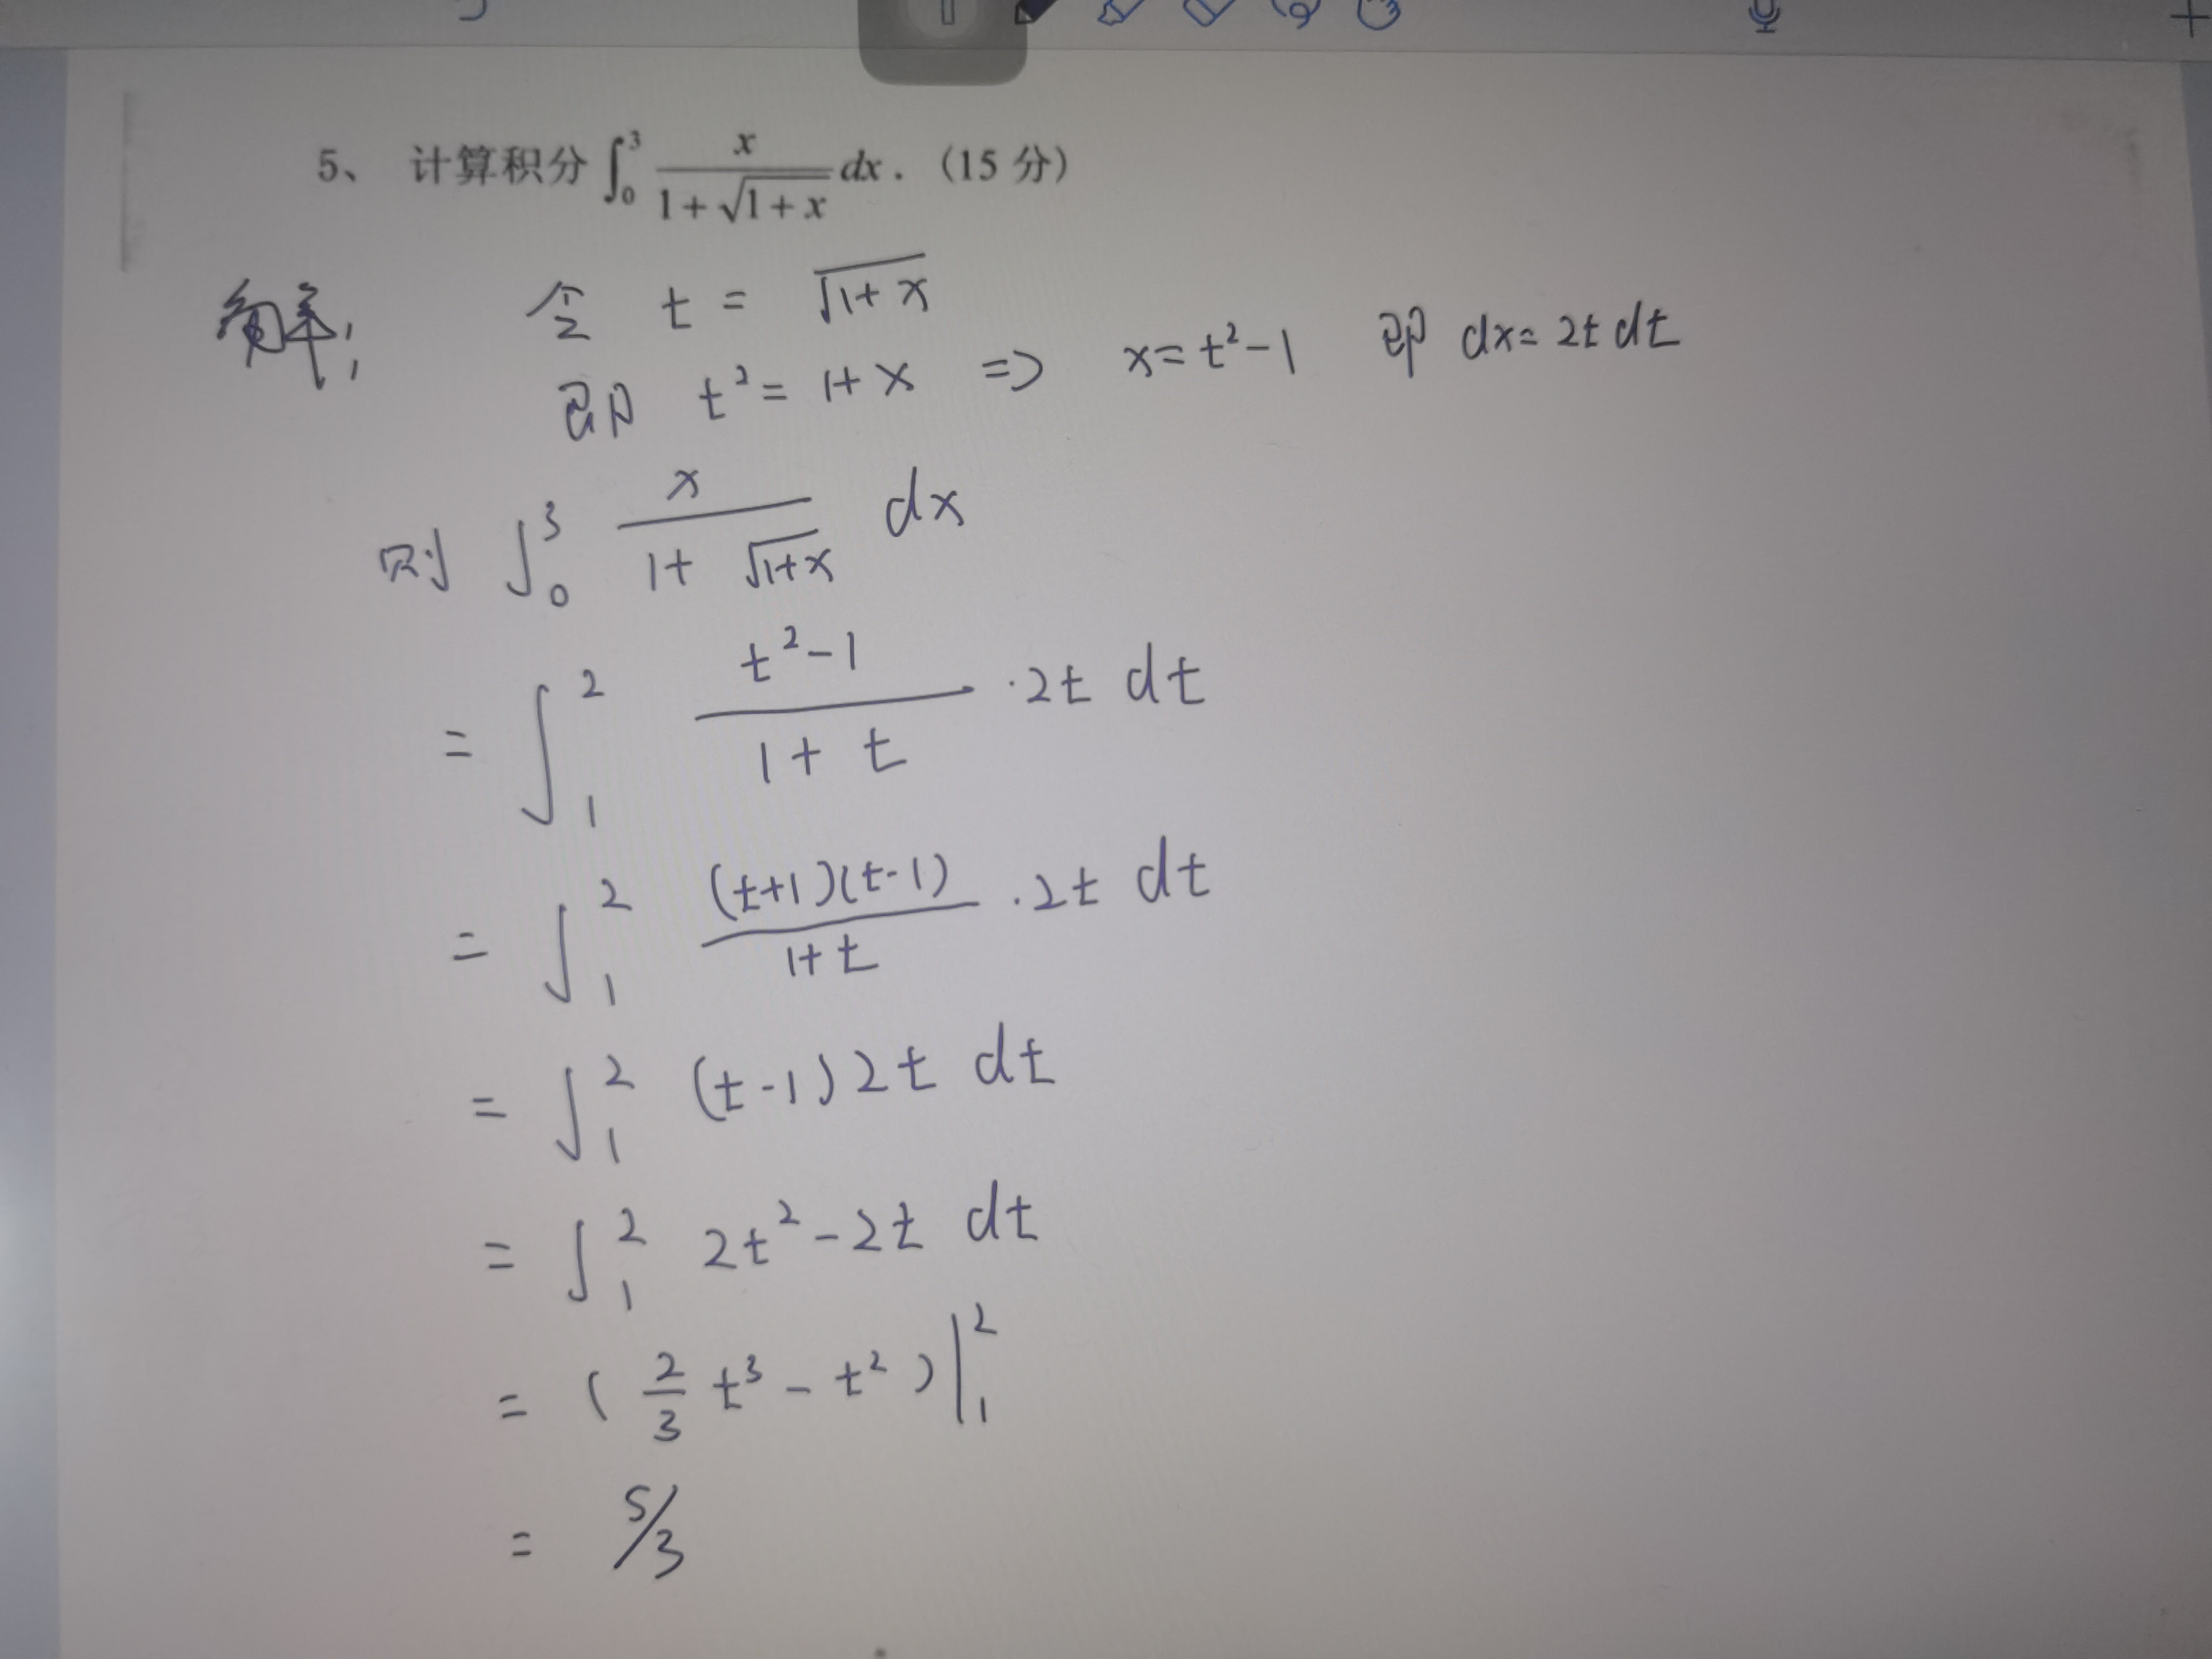 5、 计算积分 ∫₀³ x/(1+√(1+x)) dx. (15 分)
解: 令 t = √(1+x)
即 t² = 1+x => x = t²-1 即 dx = 2t dt
则 ∫₀³ x/(1+√(1+x)) dx
= ∫₁² (t²-1)/(1+t) ·2t dt
= ∫₁² (t+1)(t-1)/(1+t) ·2t dt
= ∫₁² (t-1)2t dt
= ∫₁² 2t²-2t dt
= (2/3 t³ - t²)|₁²
= 5/3